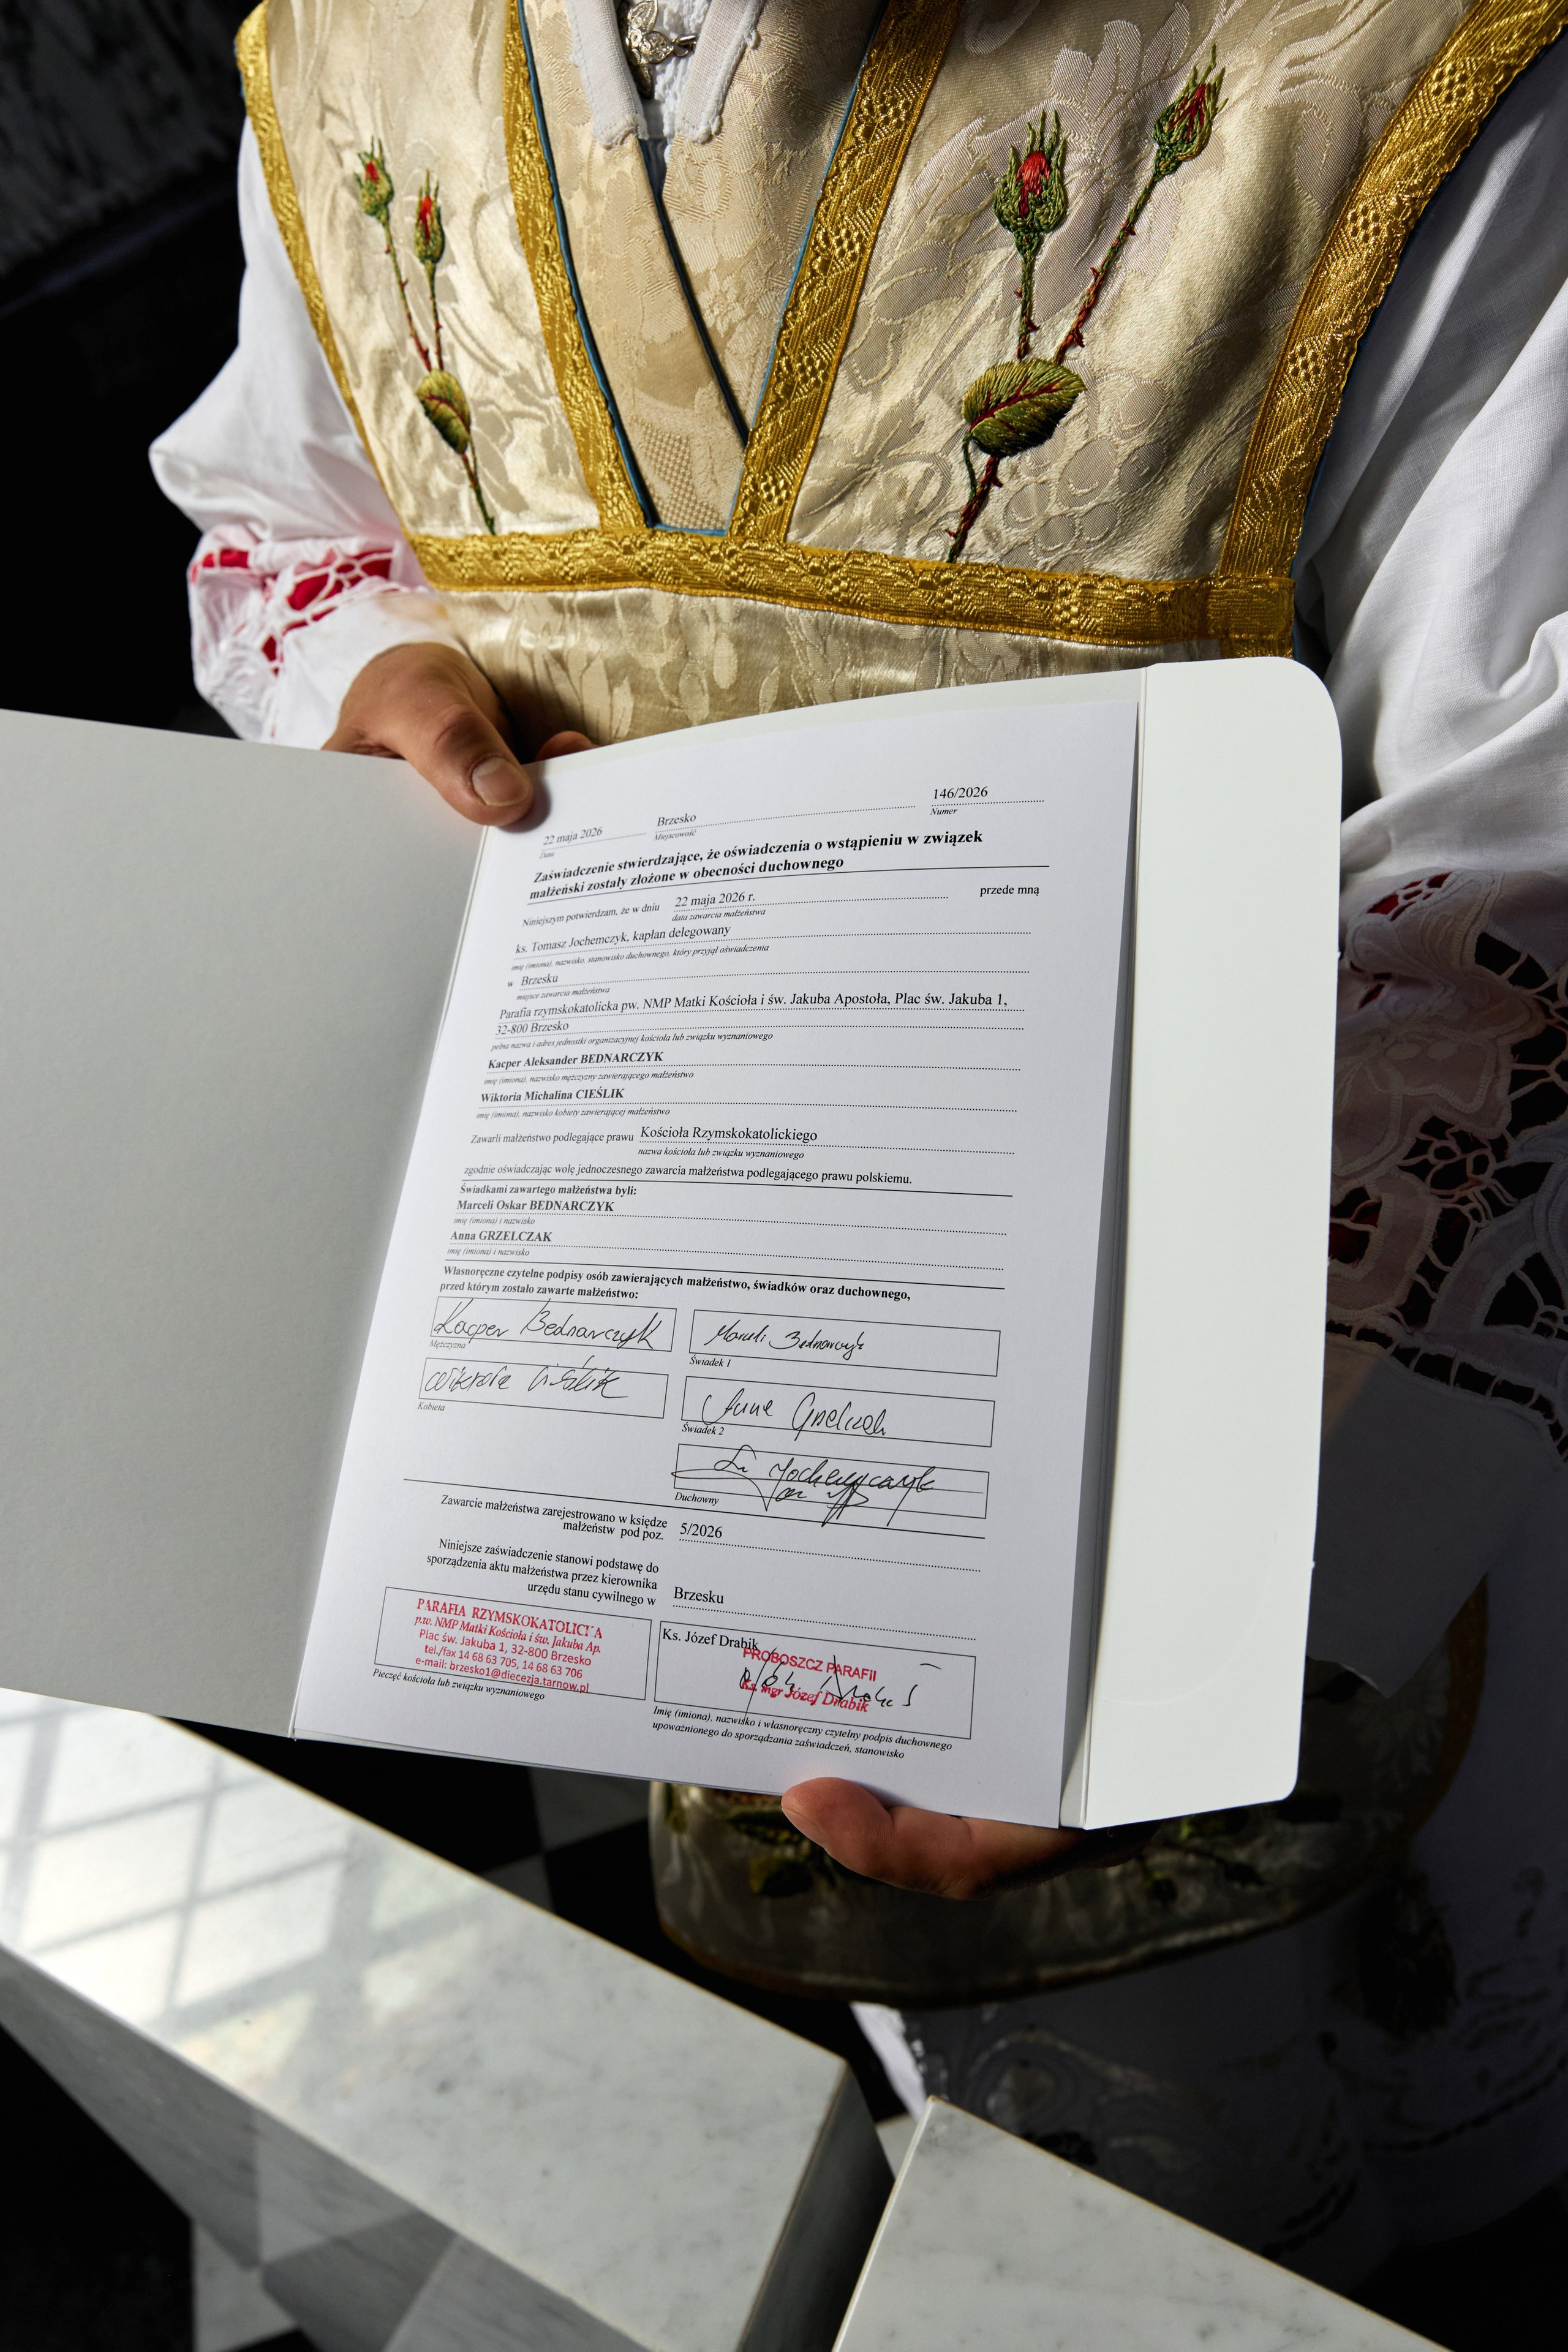 146/2026
22 maja 2026
Brzesko
Numer
Data
Miejscowość
Zaświadczenie stwierdzające, że oświadczenia o wstąpieniu w związek
małżeński zostały złożone w obecności duchownego
Niniejszym potwierdzam, że w dniu 22 maja 2026 r. przede mną
data zawarcia małżeństwa
ks. Tomasz Jochemczyk, kapłan delegowany
imię (imiona), nazwisko, stanowisko duchownego, który przyjął oświadczenia
w Brzesku
miejsce zawarcia małżeństwa
Parafia rzymskokatolicka pw. NMP Matki Kościoła i św. Jakuba Apostoła, Plac św. Jakuba 1,
32-800 Brzesko
pełna nazwa i adres jednostki organizacyjnej kościoła lub związku wyznaniowego
Kacper Aleksander BEDNARCZYK
imię (imiona), nazwisko mężczyzny zawierającego małżeństwo
Wiktoria Michalina CIEŚLIK
imię (imiona), nazwisko kobiety zawierającej małżeństwo
Zawarli małżeństwo podlegające prawu Kościoła Rzymskokatolickiego
nazwa kościoła lub związku wyznaniowego
zgodnie oświadczając wolę jednoczesnego zawarcia małżeństwa podlegającego prawu polskiemu.
Świadkami zawartego małżeństwa byli:
Marceli Oskar BEDNARCZYK
imię (imiona) i nazwisko
Anna GRZELCZAK
imię (imiona) i nazwisko
Własnoręczne czytelne podpisy osób zawierających małżeństwo, świadków oraz duchownego,
przed którym zostało zawarte małżeństwo:
Kacper Bednarczyk
Marceli Bednarczyk
Mężczyzna
Świadek 1
Wiktoria Cieślik
Anna Grzelczak
Kobieta
Świadek 2
Jochemczyk
Duchowny
Zawarcie małżeństwa zarejestrowano w księdze
małżeństw pod poz. 5/2026
Niniejsze zaświadczenie stanowi podstawę do
sporządzenia aktu małżeństwa przez kierownika
urzędu stanu cywilnego w Brzesku
PARAFIA RZYMSKOKATOLICKA
p.w. NMP Matki Kościoła i św. Jakuba Ap.
Plac św. Jakuba 1, 32-800 Brzesko
tel./fax 14 68 63 705, 14 68 63 706
e-mail: brzesko1@diecezja.tarnow.pl
Pieczęć kościoła lub związku wyznaniowego
Ks. Józef Drabik
PROBOSZCZ PARAFII
Ks. mgr Józef Drabik
Imię (imiona), nazwisko i własnoręczny czytelny podpis duchownego
upoważnionego do sporządzania zaświadczeń, stanowisko